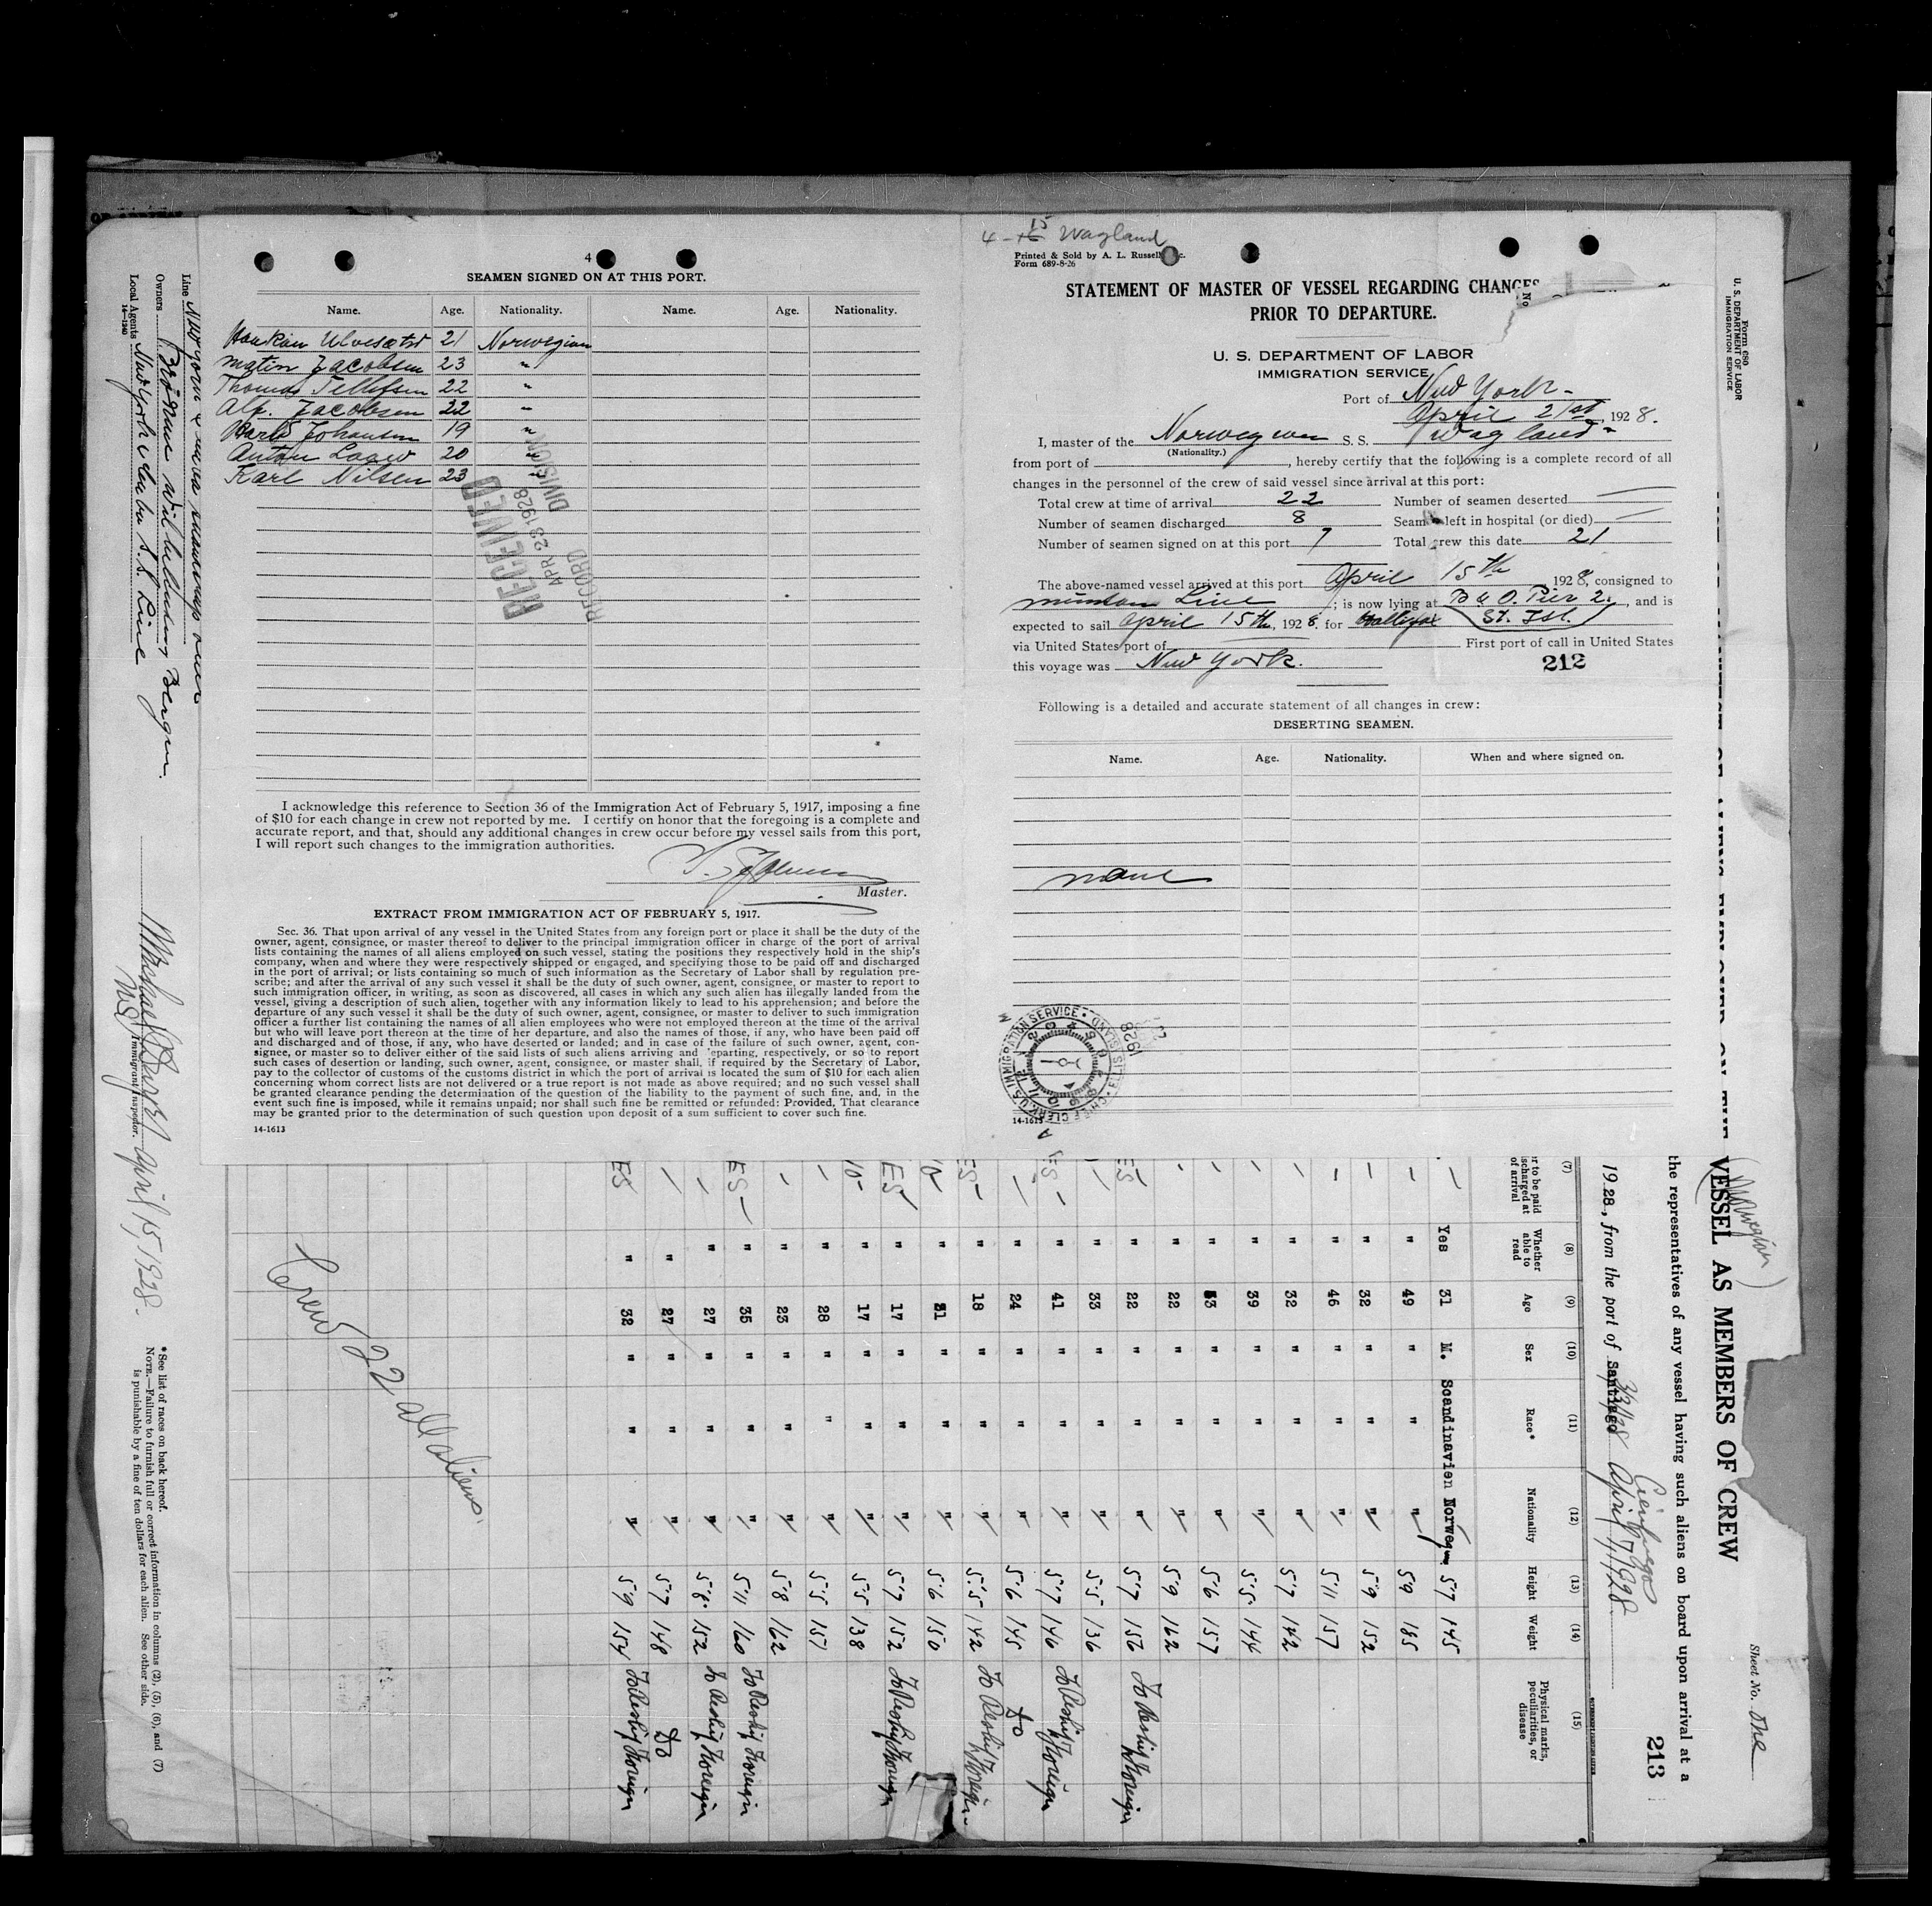 4
SEAMEN SIGNED ON AT THIS PORT.
Name. Age. Nationality. Name. Age. Nationality.
21 Norwegian
Jacobsen 23 "
Thomas 22 "
Alf. Jacobsen 22 "
Johansen 19 "
Anton 20 "
Karl Nilsen 23 "
RECEIVED
APR 23 1928
RECORD DIVISION
I acknowledge this reference to Section 36 of the Immigration Act of February 5, 1917, imposing a fine
of $10 for each change in crew not reported by me. I certify on honor that the foregoing is a complete and
accurate report, and that, should any additional changes in crew occur before my vessel sails from this port,
I will report such changes to the immigration authorities.
Master.
EXTRACT FROM IMMIGRATION ACT OF FEBRUARY 5, 1917.
Sec. 36. That upon arrival of any vessel in the United States from any foreign port or place it shall be the duty of the
owner, agent, consignee, or master thereof to deliver to the principal immigration officer in charge of the port of arrival
lists containing the names of all aliens employed on such vessel, stating the positions they respectively hold in the ship's
company, when and where they were respectively shipped or engaged, and specifying those to be paid off and discharged
in the port of arrival; or lists containing so much of such information as the Secretary of Labor shall by regulation pre-
scribe; and after the arrival of any such vessel it shall be the duty of such owner, agent, consignee, or master to report to
such immigration officer, in writing, as soon as discovered, all cases in which any such alien has illegally landed from the
vessel, giving a description of such alien, together with any information likely to lead to his apprehension; and before the
departure of any such vessel it shall be the duty of such owner, agent, consignee, or master to deliver to such immigration
officer a further list containing the names of all alien employees who were not employed thereon at the time of the arrival
but who will leave port thereon at the time of her departure, and also the names of those, if any, who have been paid off
and discharged and of those, if any, who have deserted or landed; and in case of the failure of such owner, agent, con-
signee, or master so to deliver either of the said lists of such aliens arriving and eparting, respectively, or so to report
such cases of desertion or landing, such owner, agent, consignee, or master shall, if required by the Secretary of Labor,
pay to the collector of customs of the customs district in which the port of arrival is located the sum of $10 for each alien
concerning whom correct lists are not delivered or a true report is not made as above required; and no such vessel shall
be granted clearance pending the determination of the question of the liability to the payment of such fine, and, in the
event such fine is imposed, while it remains unpaid; nor shall such fine be remitted or refunded: Provided, That clearance
may be granted prior to the determination of such question upon deposit of a sum sufficient to cover such fine.
14-1613
4 - 15 Wagland
Printed & Sold by A. L. Russell c.
Form 689-8-26
STATEMENT OF MASTER OF VESSEL REGARDING CHANGES
PRIOR TO DEPARTURE.
U. S. DEPARTMENT OF LABOR
IMMIGRATION SERVICE
Port of New York
April 21st, 1928.
I, master of the Norwegian S. S. "Wagland"
(Nationality.)
from port of , hereby certify that the following is a complete record of all
changes in the personnel of the crew of said vessel since arrival at this port:
Total crew at time of arrival 22 Number of seamen deserted
Number of seamen discharged 8 Seamen left in hospital (or died)
Number of seamen signed on at this port 7 Total crew this date 21
The above-named vessel arrived at this port April 15th 1928, consigned to
Munson Line ; is now lying at B & O. Pier 2. , and is
expected to sail April 15th, 1928, for Halifax St. Isl.
via United States port of First port of call in United States
this voyage was New York.
212
Following is a detailed and accurate statement of all changes in crew:
DESERTING SEAMEN.
Name. Age. Nationality. When and where signed on.
none
U.S. IMMIGRATION SERVICE • ELLIS ISLAND • CHIEF CLERK
1928
14-1613
Line
Owners Wilhelmsen Bergen.
Local Agents New York & Cuba S.S. Line
14-1240
Immigrant Inspector.
April 15, 1928.
* See list of races on back hereof.
NOTE.—Failure to furnish full or correct information in columns (2), (5), (6), and (7)
is punishable by a fine of ten dollars for each alien. See other side.
Form 680
U. S. DEPARTMENT OF LABOR
IMMIGRATION SERVICE
Sheet No. One
(Norwegian)
VESSEL AS MEMBERS OF CREW
the representatives of any vessel having such aliens on board upon arrival at a
213
1928, from the port of Santiago Cienfuegos April 7, 1928
(7) (8) (9) (10) (11) (12) (13) (14) (15)
Whether able to read
Age
Sex
Race*
Nationality
Height
Weight
Physical marks, peculiarities, or disease
Yes 31 M. Scandinavien Norweg 5'7 145
" 49 " " " 5'9 185
" 32 " " " 5'9 152
" 46 " " " 5'11 157
" 32 " " " 5'7 142
" 39 " " " 5'5 144
" " " " 5'6 157
" 22 " " " 5'9 162
" 22 " " " 5'7 156 To Reship Foreign
" 33 " " " 5'5 136
" 41 " " " 5'7 146 To Reship Foreign
" 24 " " " 5'6 145 Do
" 18 " " " 5'5 142 To Reship Foreign
" " " " 5'6 150
" 17 " " " 5'7 152 To Reship Foreign
" 17 " " " 5'5 138
" 28 " " " 5'5 157
" 23 " " " 5'8 162
" 35 " " " 5'11 160 To Reship Foreign
" 27 " " " 5'8 152 To Reship Foreign
" 27 " " " 5'7 148 Do
" 32 " " " 5'9 154 To Reship Foreign
Crew 22 all aliens.